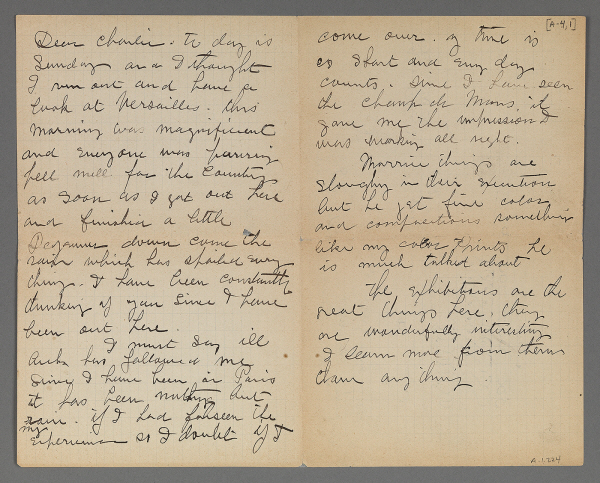 Dear Charlie. To day is
Sunday and I thought
I run out and have a
look at Versailles. this
morning was magnificent
and everyone was
pell mell for the Country
as soon as I got out here
and finished a little
down came the
rain which has spoiled every
thing. I have been constantly
thinking of you since I have
been out here.
I must say ill
luck has followed me
since I have been in Paris
it has been nothing but
rain. if I had forseen the
my
experience so I doubt if I
[A-4,1]
come over. my time is
so short and every day
counts. Since I have seen
the Champ de Mars, it
gave me the impression I
was working all right.
things are
sloughy in their execution
but he get fine color
and compositions something
like my color prints he
is much talked about
The exhibitions are the
great things here, they
are wonderfully interesting
I learn more from them
than anything.
A.1224